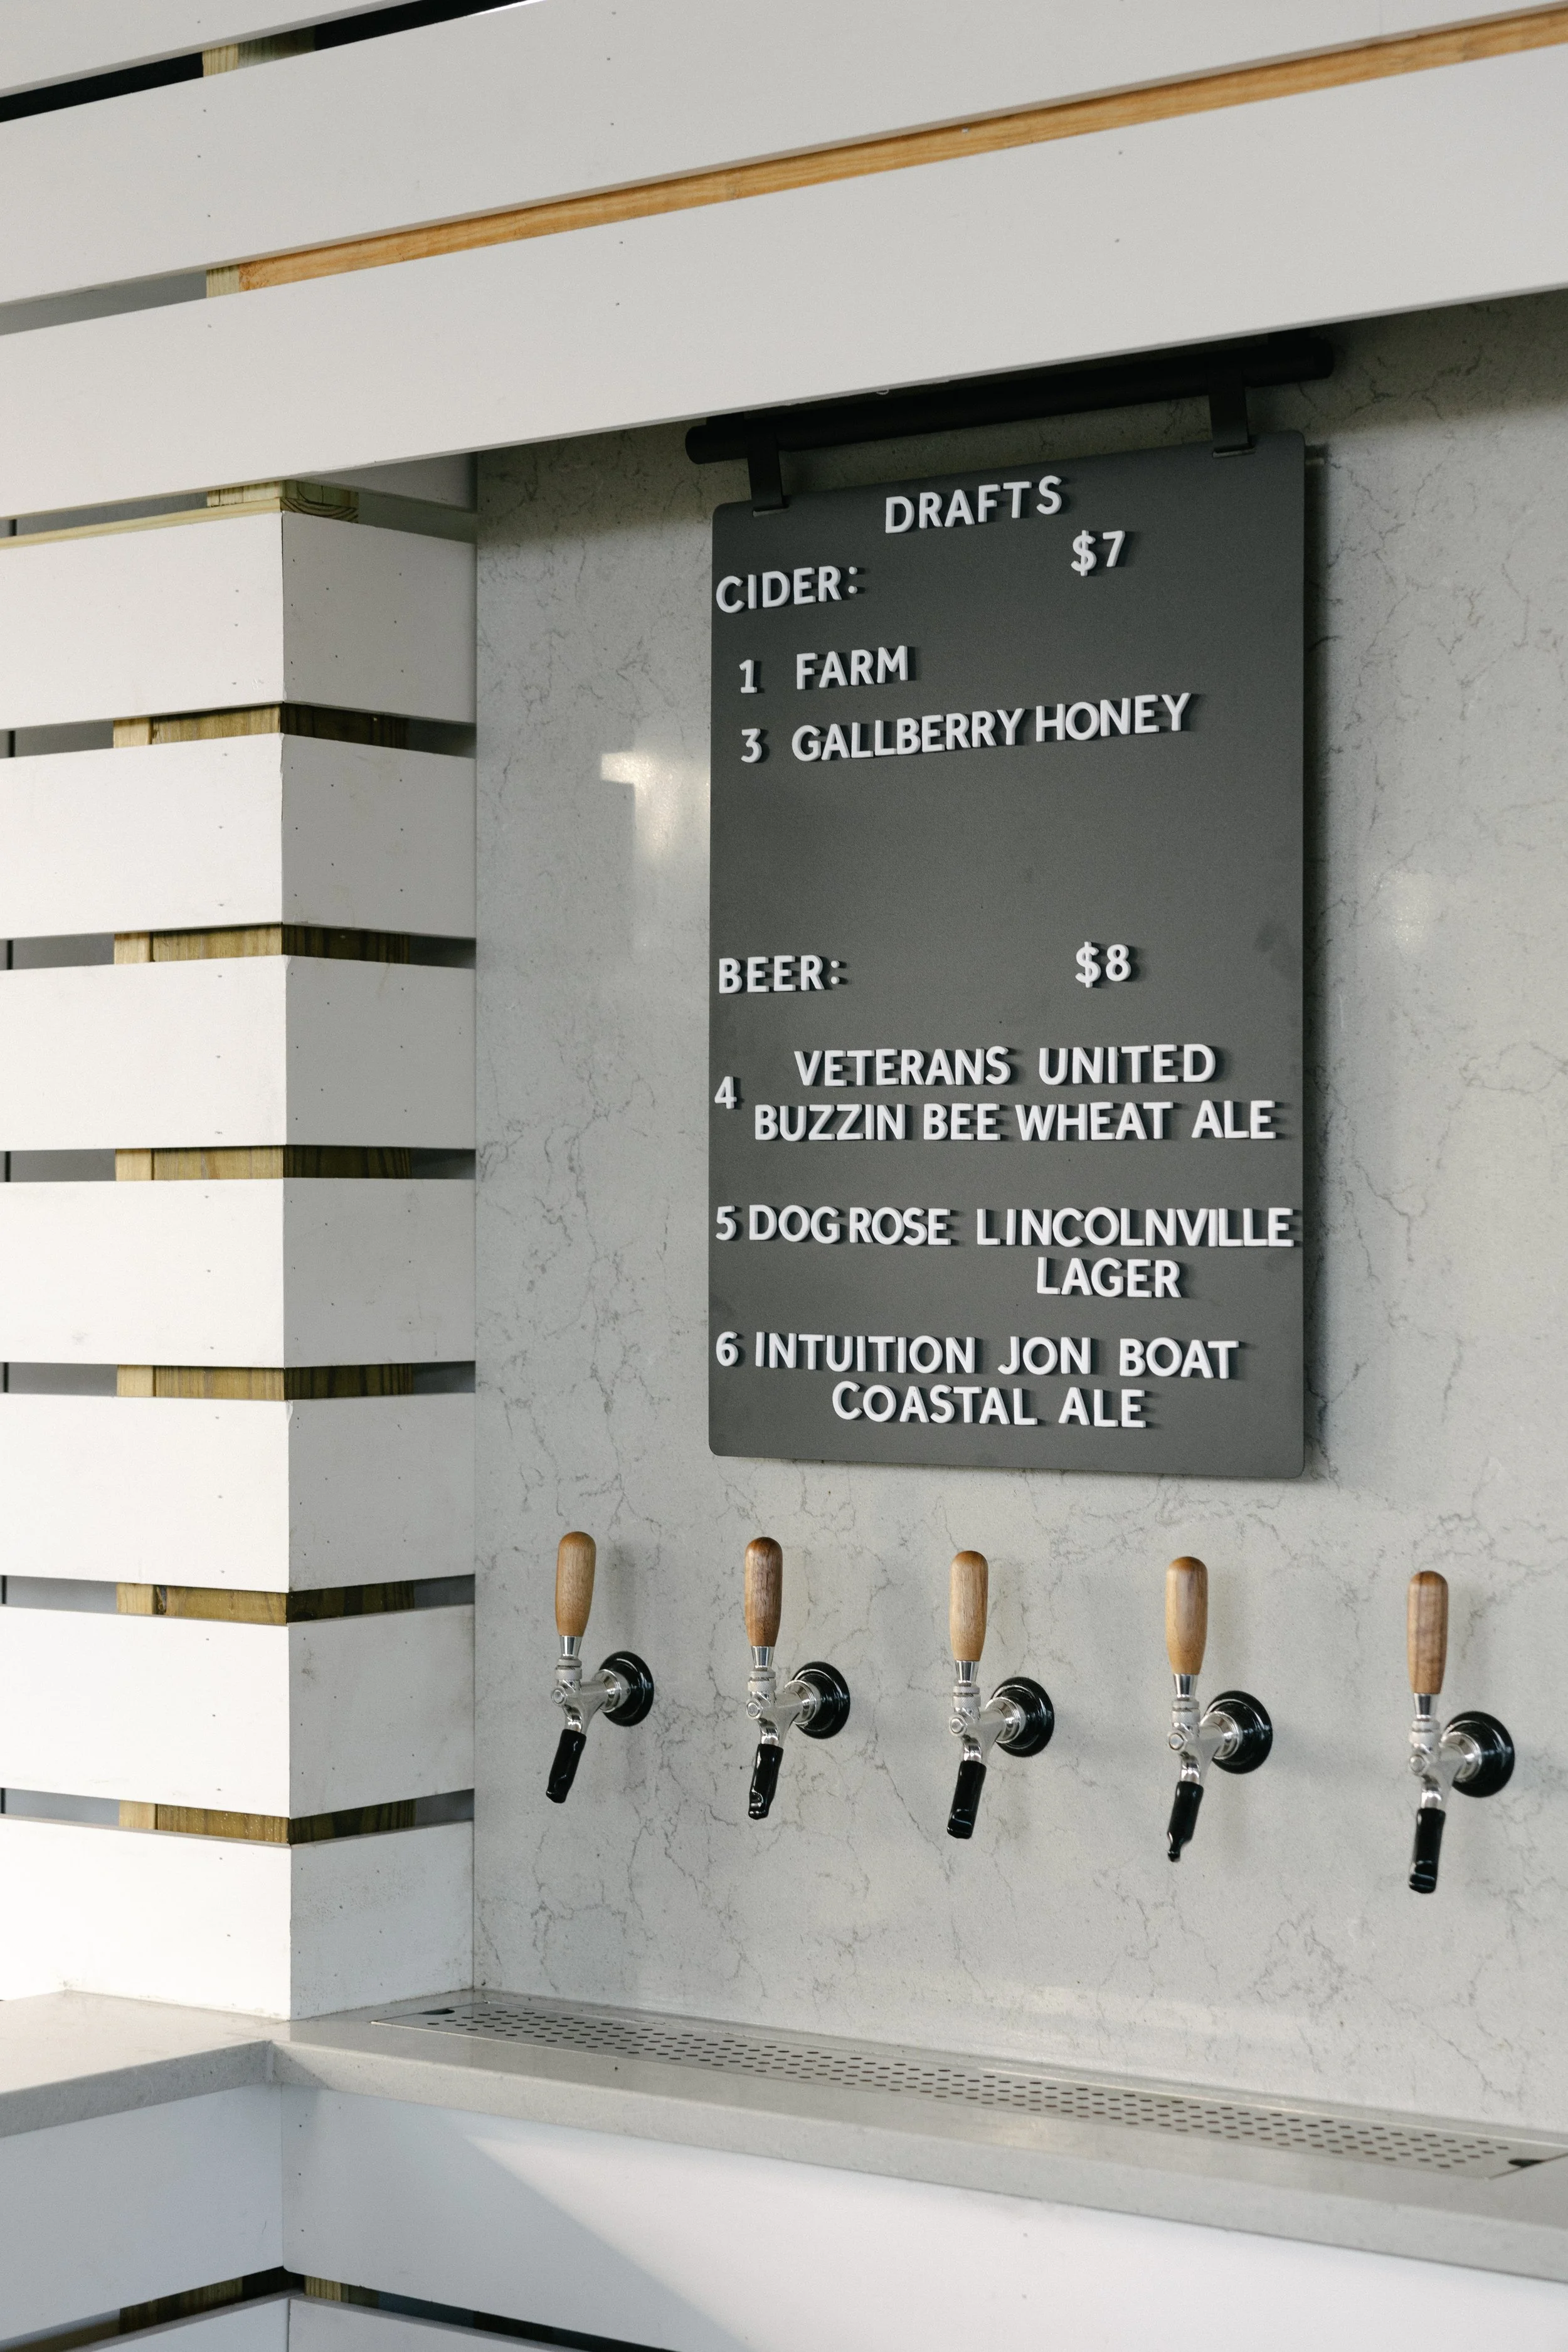 DRAFTS
$7
CIDER:
1 FARM
3 GALLBERRY HONEY
BEER: $8
VETERANS UNITED
4
BUZZIN BEE WHEAT ALE
5 DOG ROSE LINCOLNVILLE
LAGER
6 INTUITION JON BOAT
COASTAL ALE